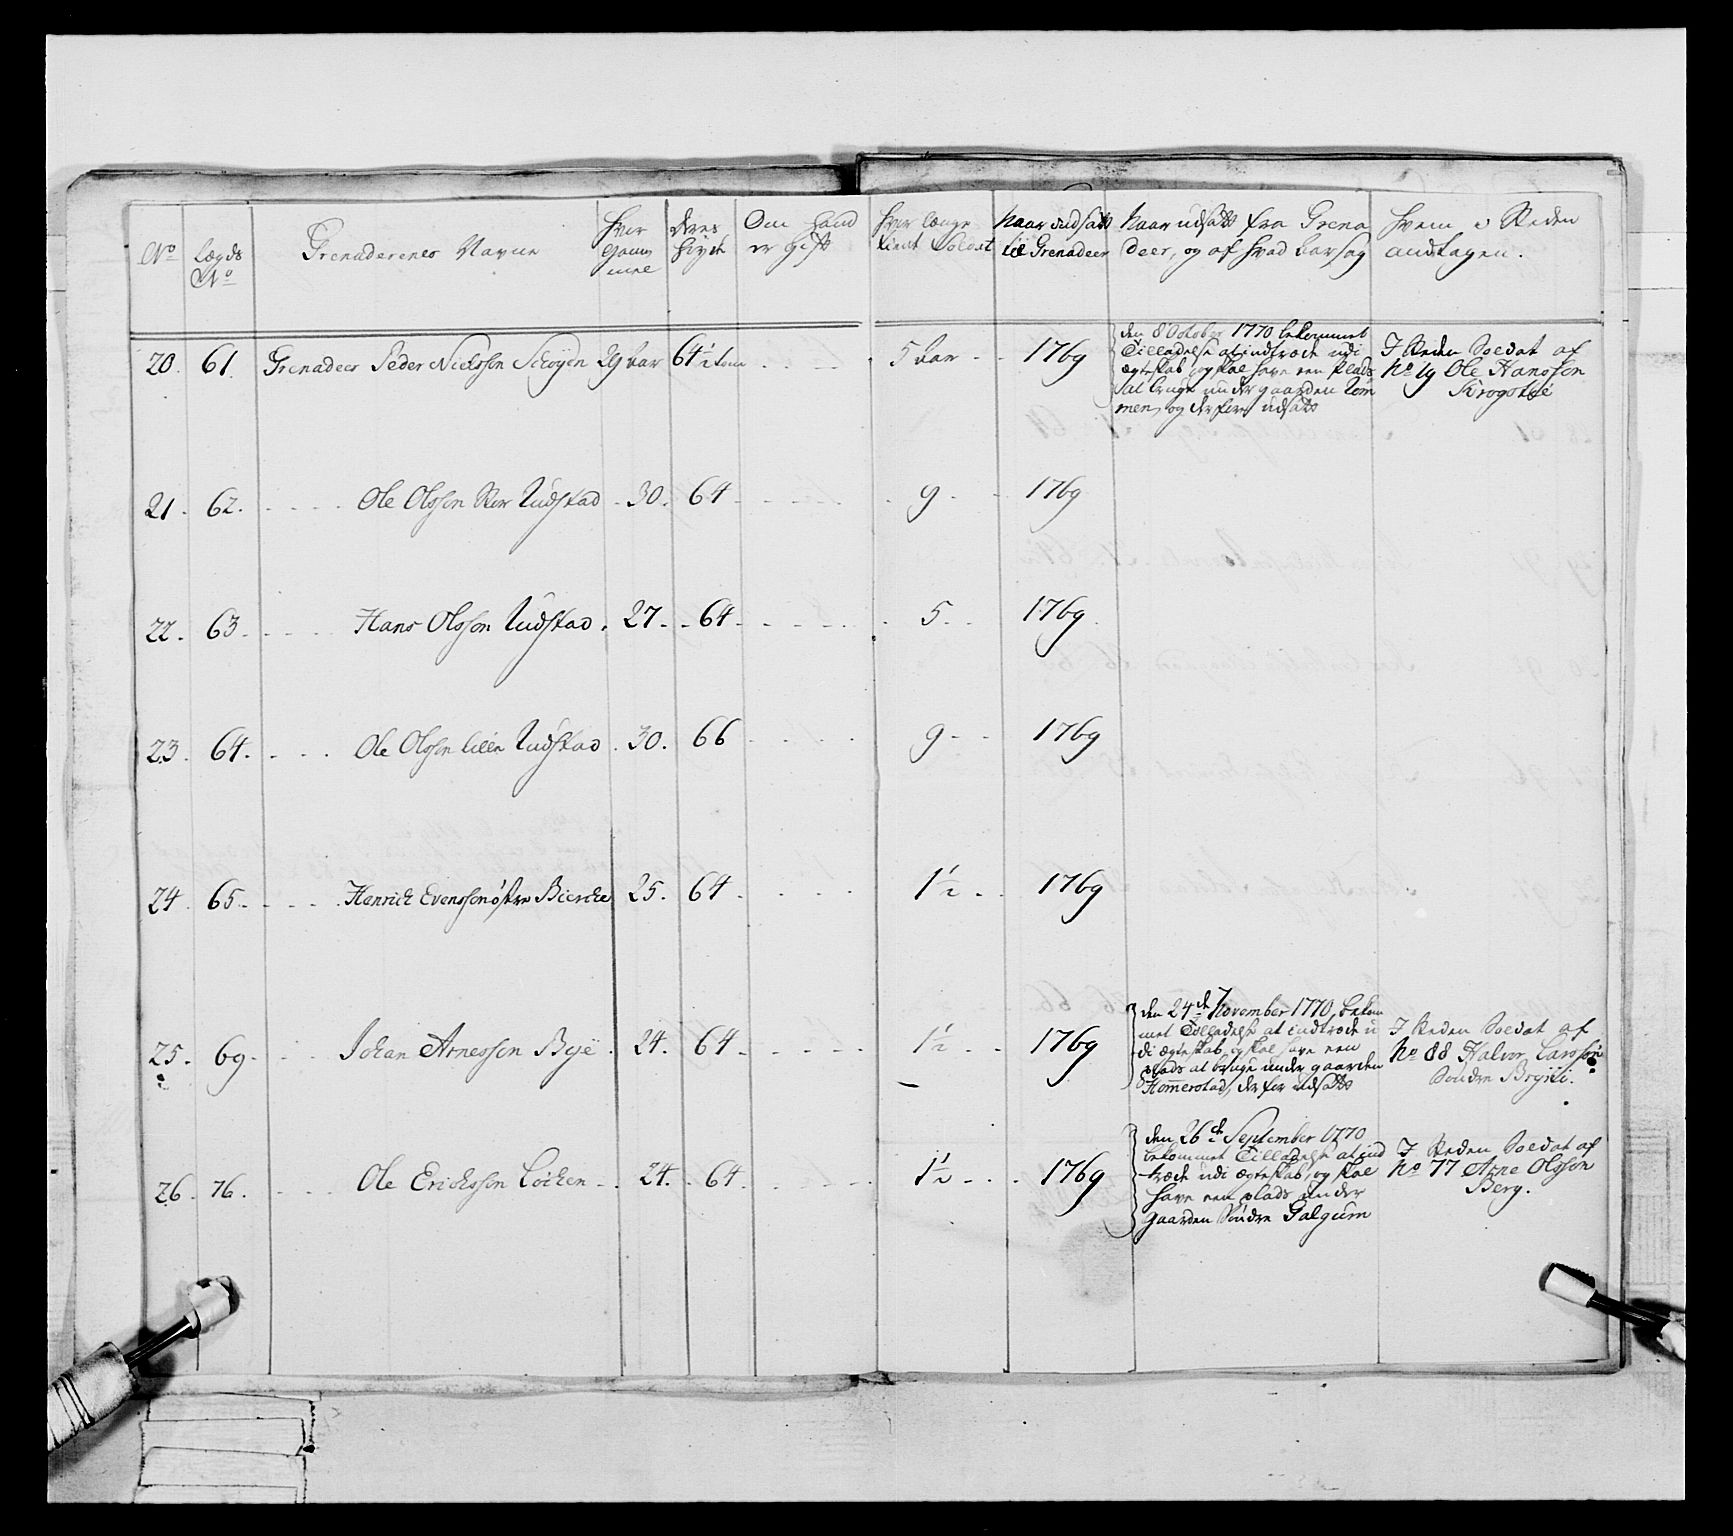 No
Lægds
No
Grenaderenes Navne
Hvor
gam̄
mel
deres
Høyde
Om Hand
er gift
Hvor længe
tient
Naar indsatt
til Grenadeer
Naar udsatt fra Grena
deer, og af Hvad aarsag
Hvem i Steden
andtagen.
20. 61. Grenadeer Peder Nielsson Schøyen 29 aar 64½ tom̄ 5 aar 1769
den 8 October 1770 bekommet
Tilladelse at indtræde udi
ægteskab, og skal have een Plads
at bruge under gaarden Lom
men, og derfor udsatt
I Steden Soldat af
No 19 Ole Hansson
Krogstie
21. 62. Ole Olsson Stor Rudstad 30. 64 9 1769
22. 63. Hans Olsson Rudstad. 27. 64. 5. 1769.
23. 64. Ole Olsson lille Rudstad. 30. 66 9 1769
24. 65. Henrich Evensson østre Biercke 25. 64. 1½ 1769
25. 69. Johan Arnesson Bye. 24. 64. 1½ 1769
den 24de November 1770, bekom
met Tilladelse at indtræde u
di ægteskab, og skal have een
plads at bruge under gaarden
Hom̄erstad, derfor udsatt
I Steden Soldat af
No 88 Halvor Larsson
Søndre Brynj.
26. 76. Ole Ericksson Løcken 24. 64. 1½ 1769
den 26de September 1770
bekommet Tilladelse at ind
træde udi ægteskab, og skal
have een plads under
gaarden Søndre Galgum
I Steden Soldat af
No 77 Arne Olsson
Berg.